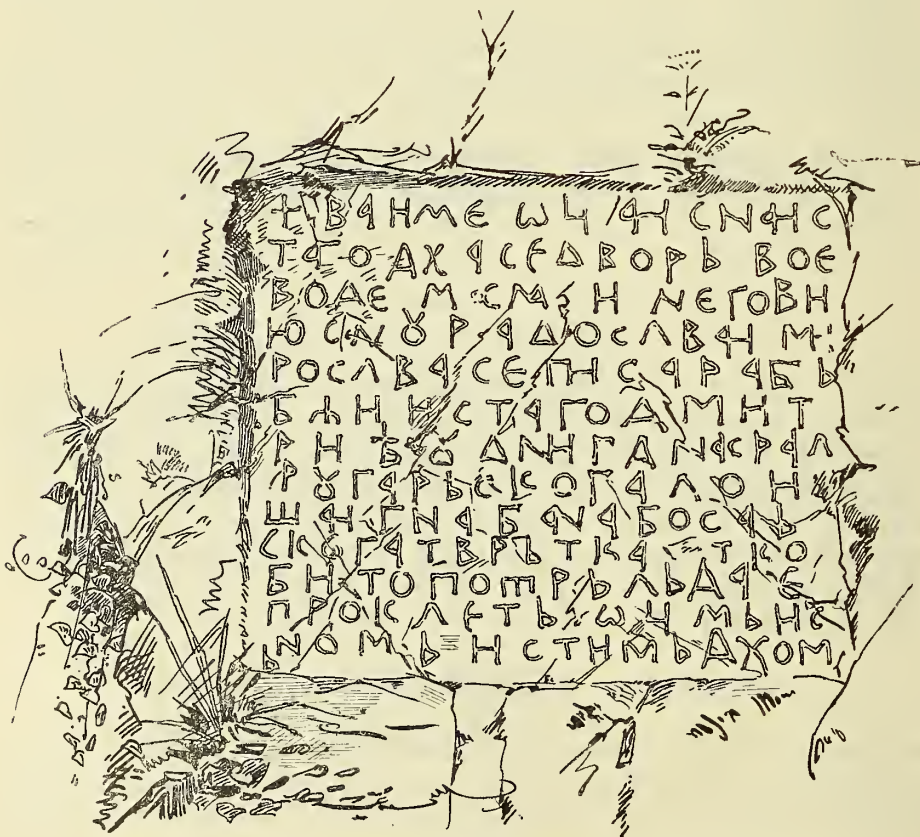 + ВА ИМЕ ѠЦАИ СNАИ С
ТАГО ДХ А СЕ ДВОРЬ ВОЕ
ВОДЕ МАСМА И NЕГОВИ
Ю СNꙊ РАДОСЛВАИ МИ
РОСЛВА СЕ ПИСА РАБЬ
БЖИИ И СТАГО ДМИТ
РИ Ꙋ ДNИ Г ДNА КРАЛ
ꙊГАРЬСКОГА ЛОИ
ША И ГNА БАNА БОСАЬ
СКОГА ТВРЪТКА А ТКО
БИ ТО ПОТРЬЛЬ ДА Е
ПРОКЛЕТЬ ѠЦИМЬ И С
ЬNОМЬ И СТИМЬ ДХОМ